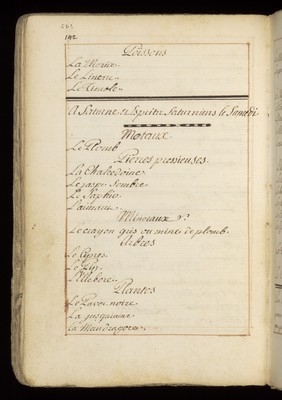 142
Poissons
La Morue
Le
Le
A Saturne et Esprits Saturniens le Samedi
Metaux
Le Plomb
Pierres pressieuses
La Chalcedoine
Le jaspe sombre
Le Saphir
L'aimant
Mineraux
Le crayon gris ou mine de plomb
Arbres
Le Cypres
Le Pin
L'Elebore
Plantes
Le Pavot noire
La jusquiame
La Mandragore